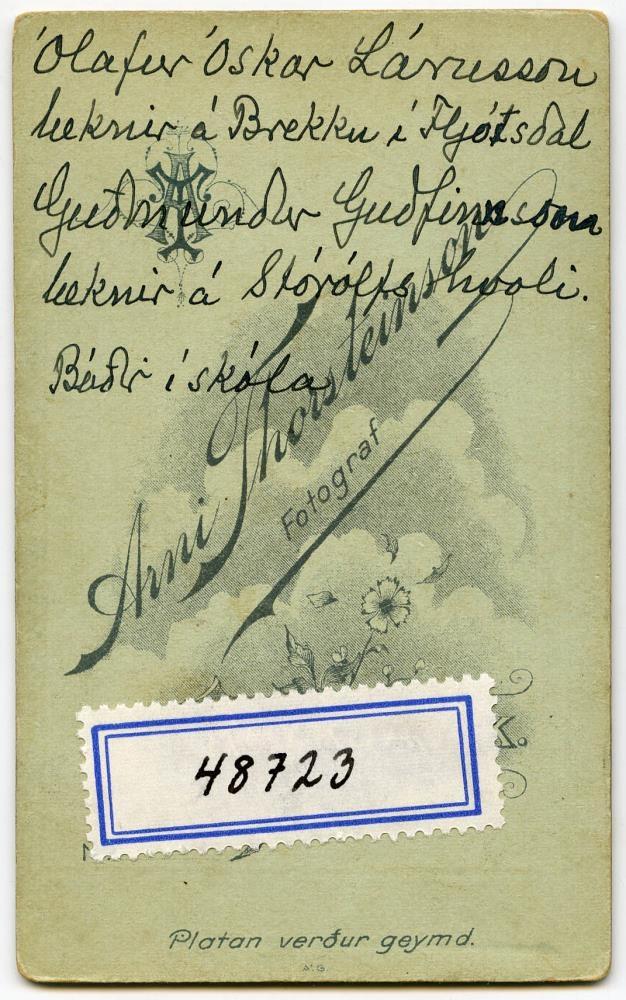 Ólafur Óskar Lárusson
læknir á Brekku í Fljótsdal
Guðmundur Guðfinnsson
læknir á Stórólfshvoli.
Báðir í skóla
Arni Thorsteinson
Fotograf
48723
Platan verður geymd.
A.G.